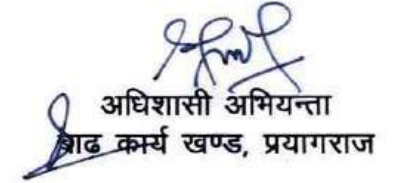 अधिशासी अभियन्ता
बाढ कार्य खण्ड, प्रयागराज